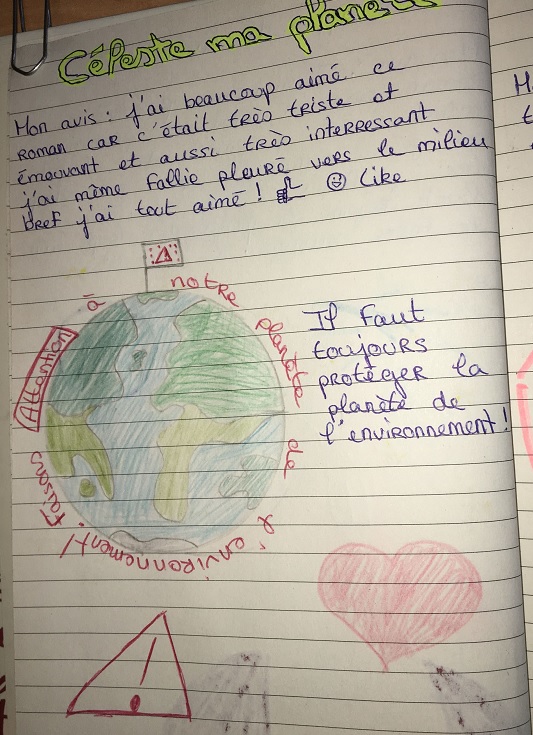 Céleste ma planète
Mon avis : j'ai beaucoup aimé ce
roman car c'était très triste et
émouvant et aussi très interressant
j'ai même fallie pleuré vers le milieu
Beef j'ai tout aimé ! Like
Attention à notre planète de l'environnement !
Faisons
Il faut
toujours
protéger la
planète de
l'environnement !